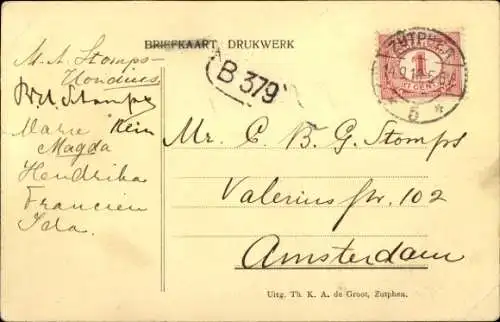 BRIEFKAART DRUKWERK
ZUTPHEN
1
5
B 379
M. A. Stomps-
Hondius
Stomps
Marie
Magda
Hendrika
Francien
Ida.
Mr. C. B. G. Stomps
Valeriusstr. 102
Amsterdam
Uitg. Th. K. A. de Groot, Zutphen.